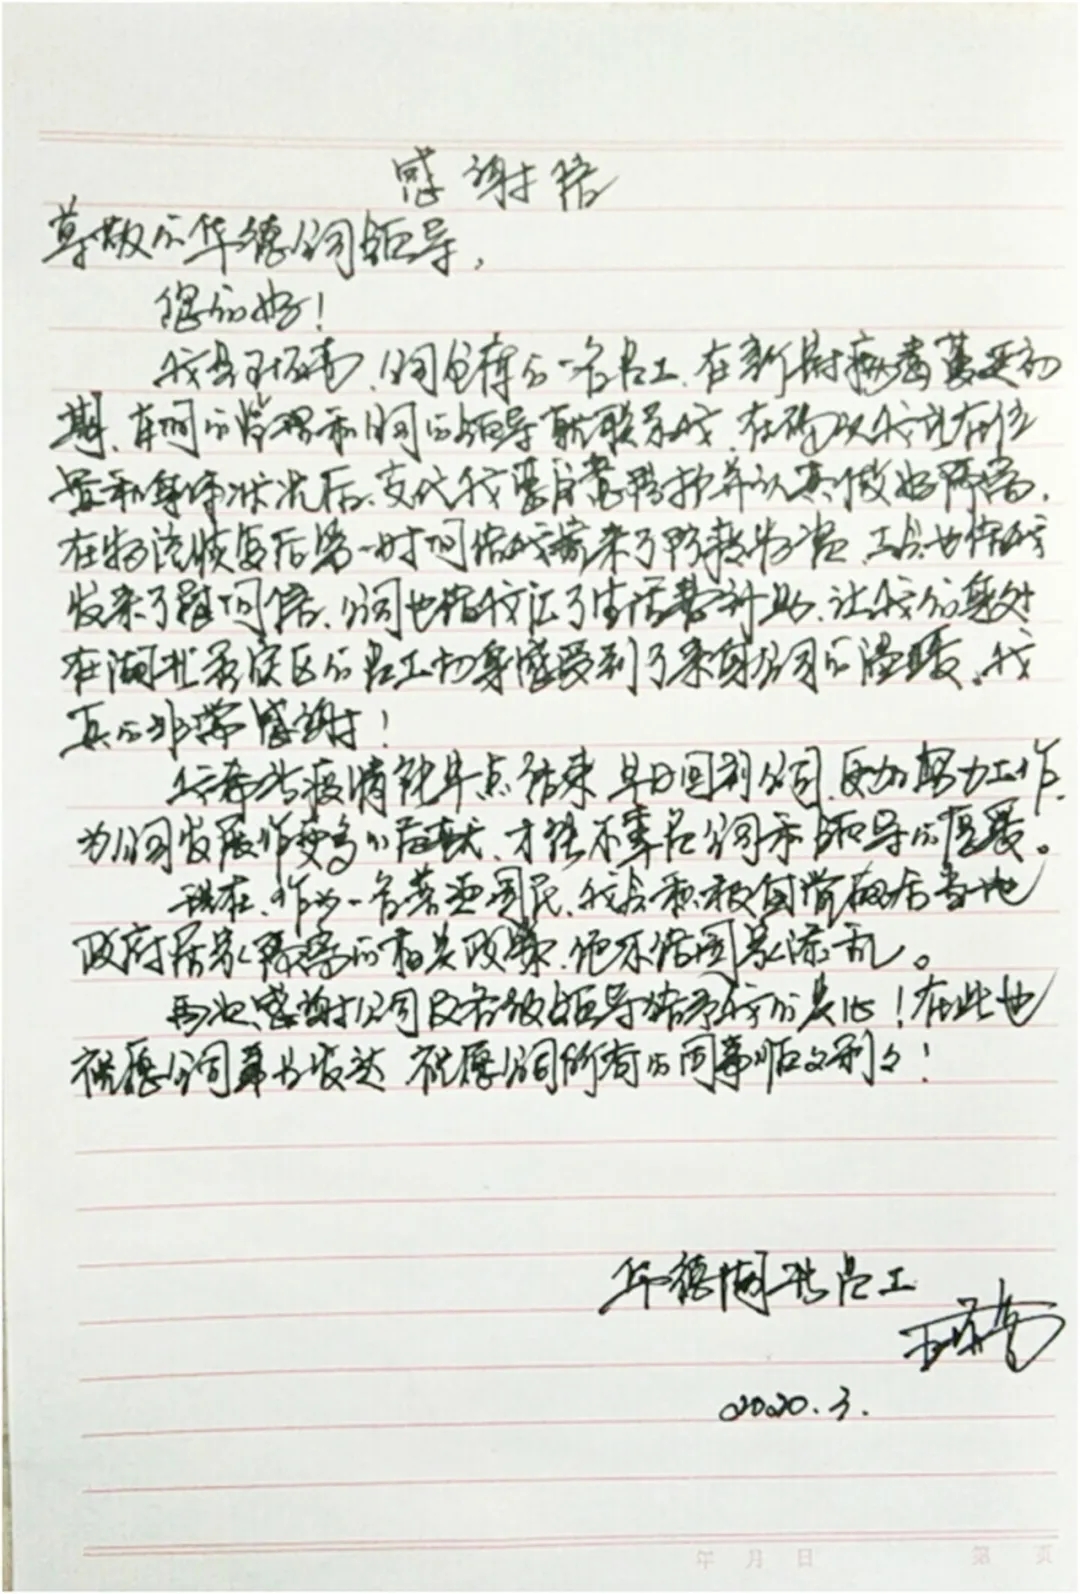 感谢信
尊敬的华德公司领导,
您们好!
我是王,公司仓库的一名员工,在新冠病毒蔓延初
期,车间的管理和公司的领导就联系我,在确认我所在位
置和身体状况后,交代我要注意防护并认真做好隔离,
在物流恢复后第一时间给我寄来了防疫物资,工会也给我
发来了慰问信,公司也给我汇了生活费补助,让我们身处
在湖北重灾区的员工切身感受到了来自公司的温暖。我
真的非常感谢!
我希望疫情能早点结束,早日回到公司,更加努力工作,
为公司发展作更多的贡献,才能不辜负公司和领导的厚爱。
现在,作为一名普通国民,我会积极自觉配合当地
政府居家隔离的相关政策,绝不给国家添乱。
再次感谢公司及各级领导给予我的关心!在此也
祝愿公司事业发达,祝愿公司所有的同事顺顺利利!
华德湖北员工
王
2020.3.
年 月 日 第 页